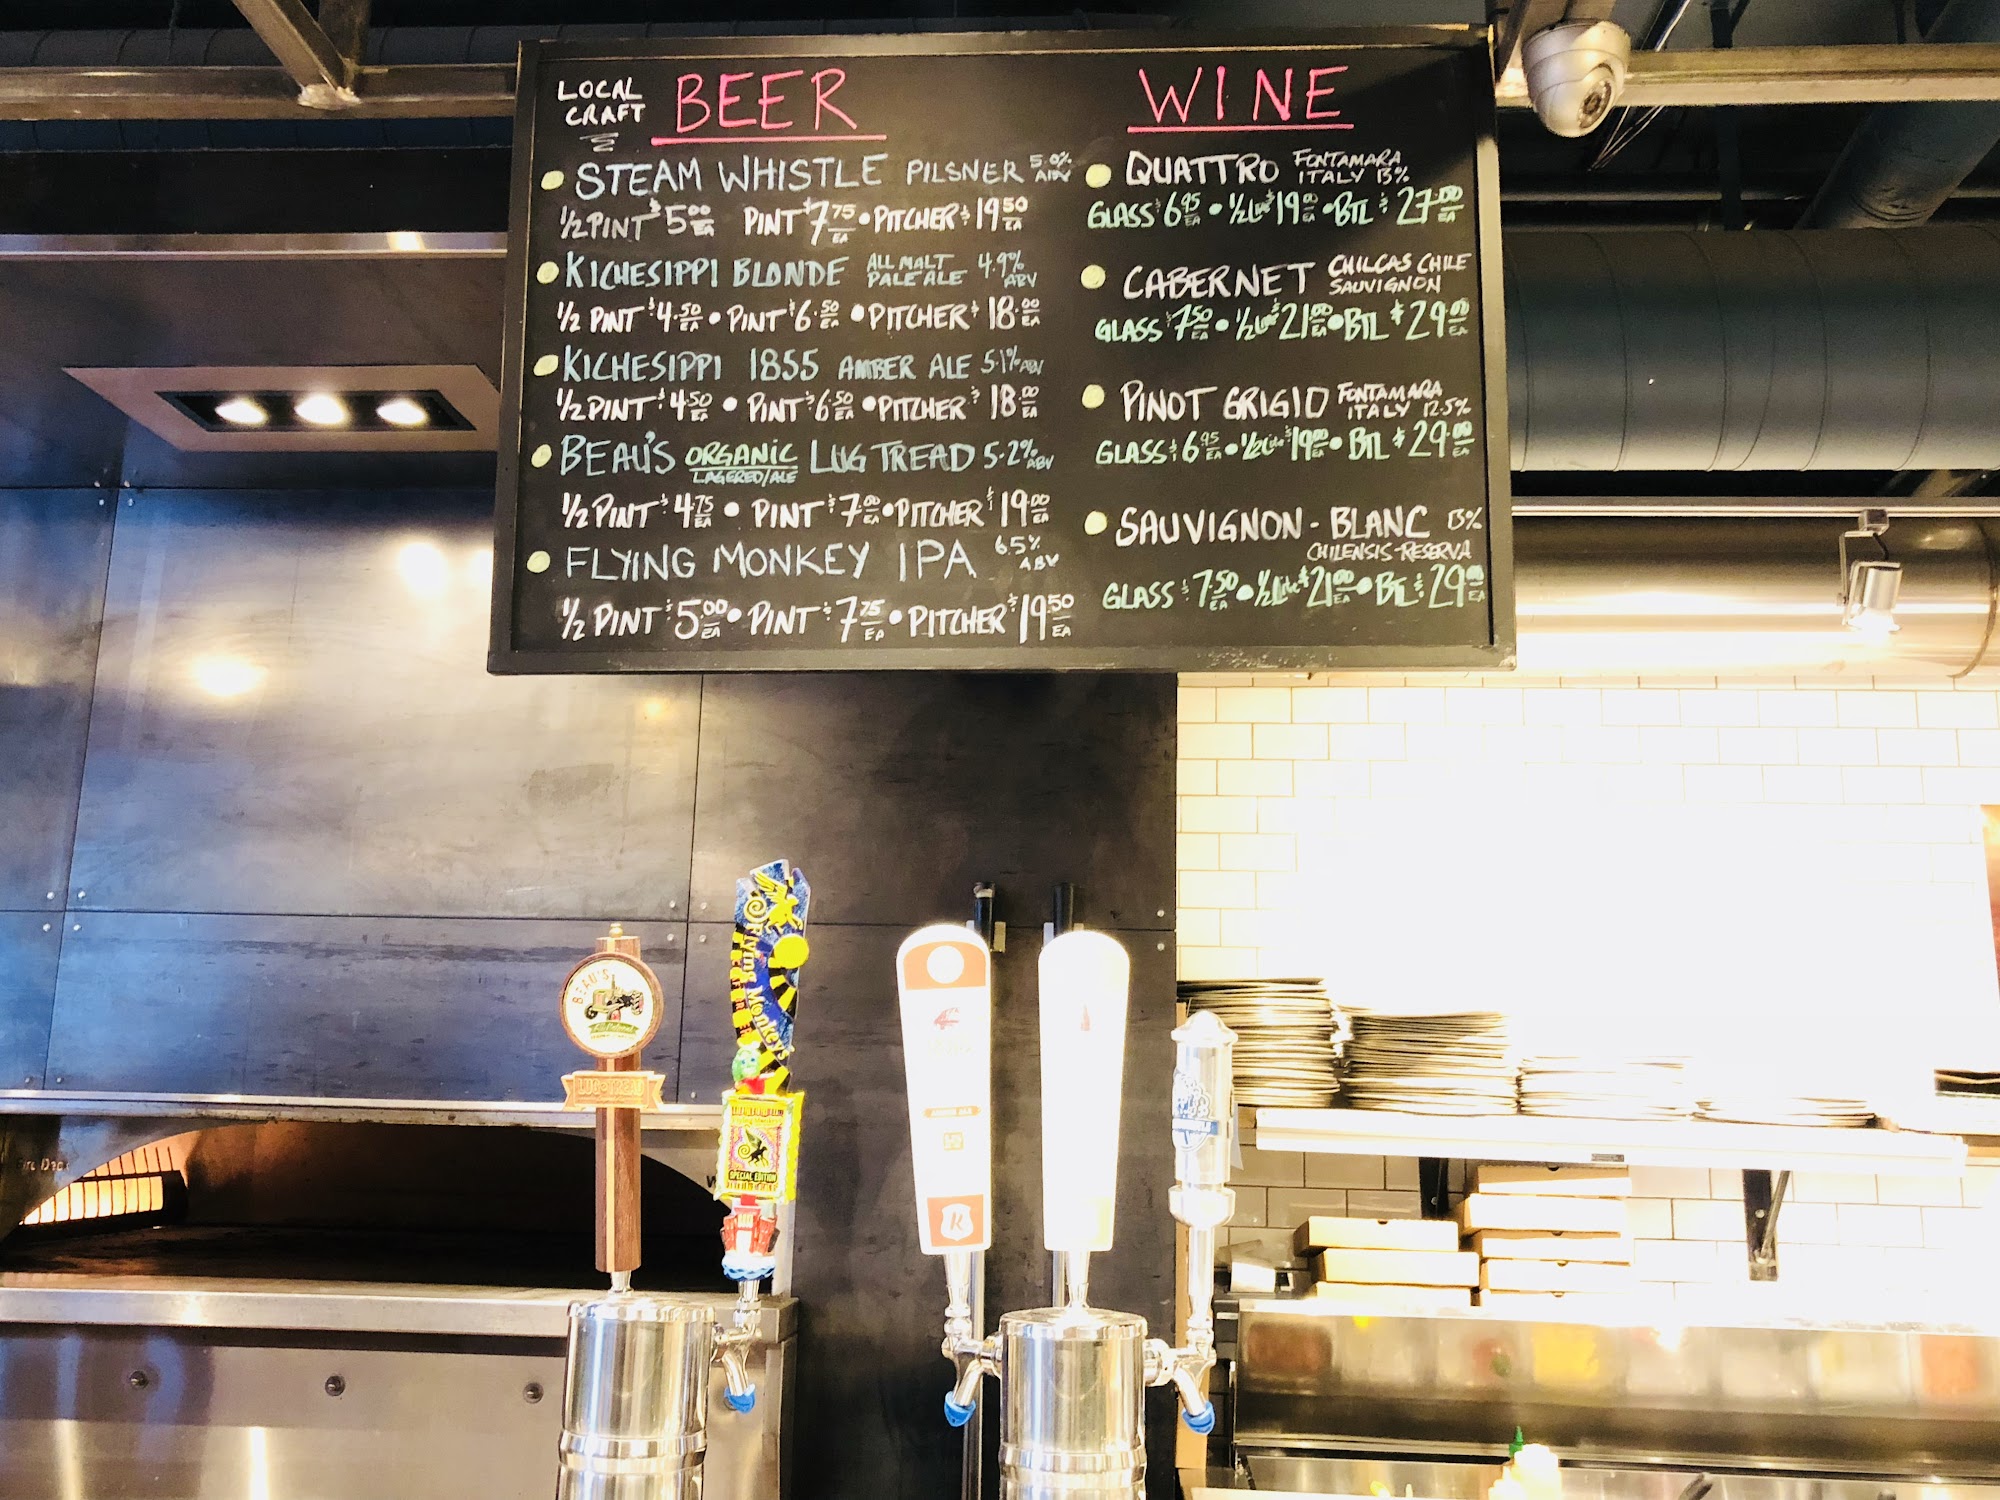 LOCAL CRAFT BEER
STEAM WHISTLE PILSNER 5.0% ABV
1/2 PINT $5.00 EA PINT $7.75 EA • PITCHER $19.50 EA
KICHESIPPI BLONDE ALL MALT PALE ALE 4.9% ABV
1/2 PINT $4.50 EA • PINT $6.50 EA • PITCHER $18.00 EA
KICHESIPPI 1855 AMBER ALE 5.1% ABV
1/2 PINT $4.50 EA • PINT $6.50 EA • PITCHER $18.00 EA
BEAU'S ORGANIC LAGERED/ALE LUG TREAD 5.2% ABV
1/2 PINT $4.75 EA • PINT $7.00 EA • PITCHER $19.00 EA
FLYING MONKEY IPA 6.5% ABV
1/2 PINT $5.00 EA • PINT $7.75 EA • PITCHER $19.50 EA
WINE
QUATTRO FONTAMARA ITALY 13%
GLASS $6.95 EA • 1/2 Litre $19.00 EA • BTL $27.00 EA
CABERNET CHILCAS CHILE SAUVIGNON
GLASS $7.50 EA • 1/2 Litre $21.00 EA • BTL $29.00 EA
PINOT GRIGIO FONTAMARA ITALY 12.5%
GLASS $6.95 EA • 1/2 Litre $19.00 EA • BTL $29.00 EA
SAUVIGNON-BLANC 13%
CHILENSIS-RESERVA
GLASS $7.50 EA • 1/2 Litre $21.00 EA • BTL $29.00 EA
BEAU'S
LUG TREAD
Flying Monkeys
SPECIAL EDITION
K